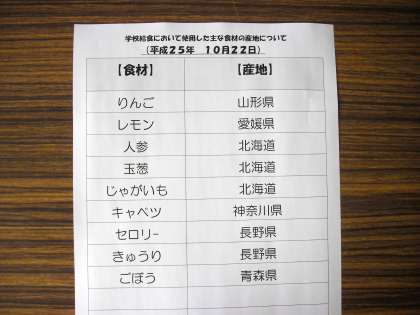 学校給食において使用した主な食材の産地について
（平成２５年　１０月２２日）
【食材】　【産地】
りんご　山形県
レモン　愛媛県
人参　北海道
玉葱　北海道
じゃがいも　北海道
キャベツ　神奈川県
セロリー　長野県
きゅうり　長野県
ごぼう　青森県